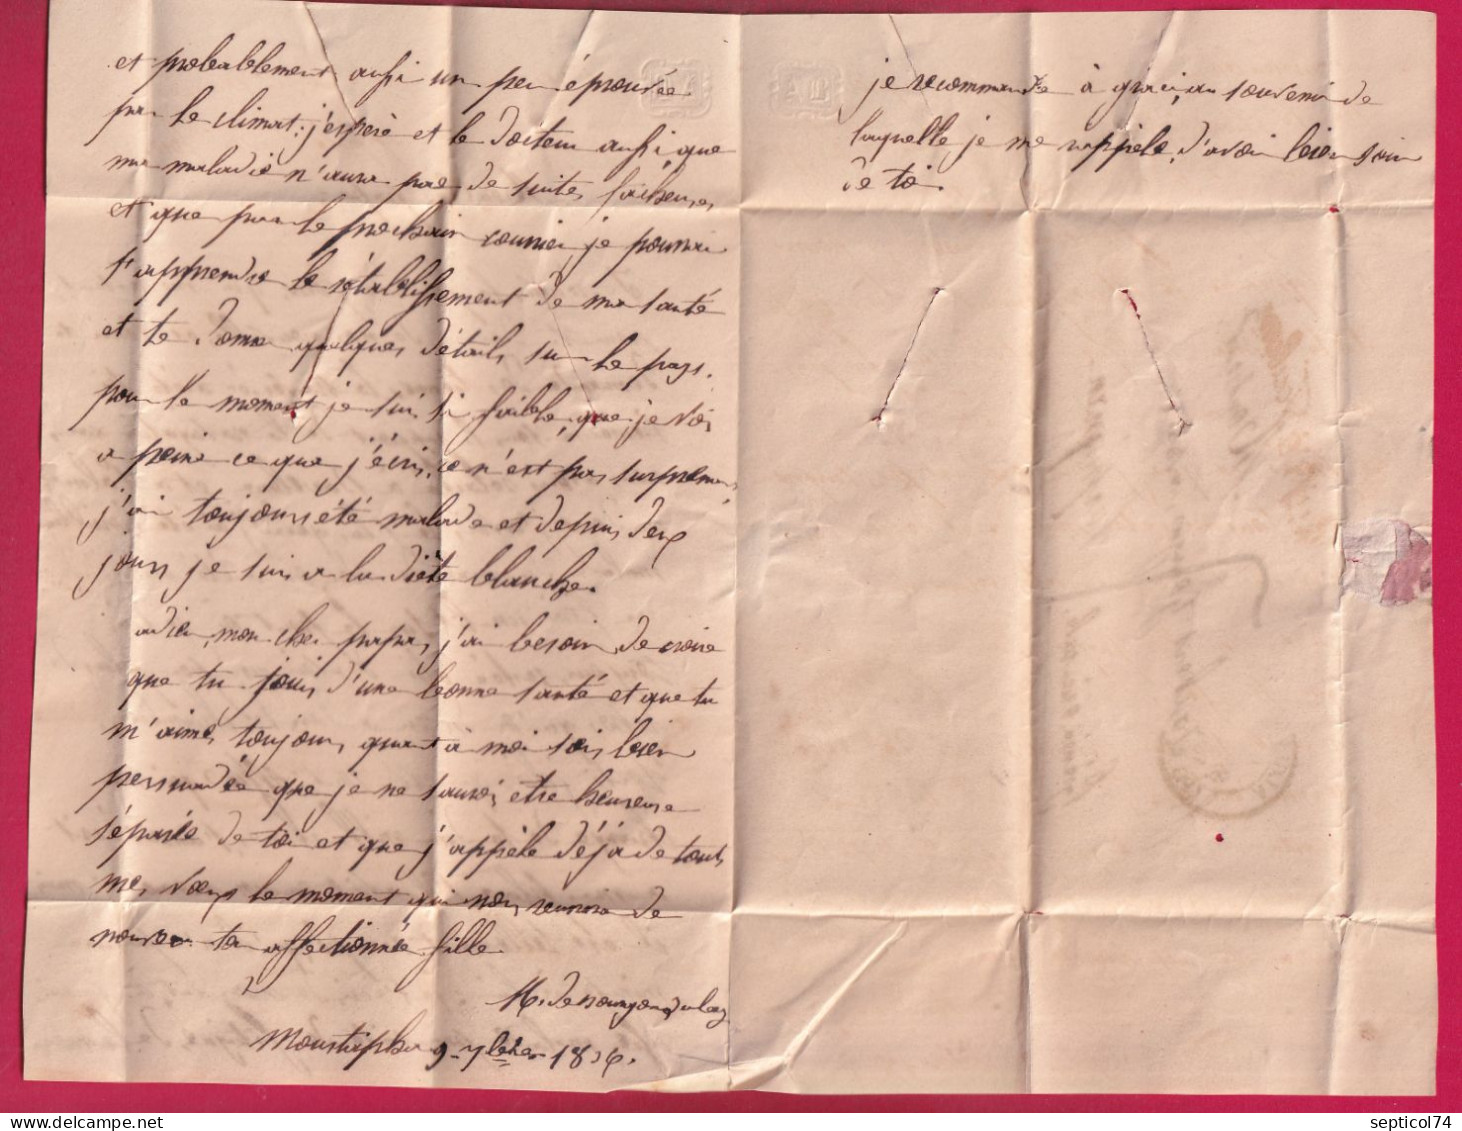 et probablement aussi un peu éprouvée
par le climat; j'espère et le docteur aussi, que
ma maladie n'aura pas de suites facheuses
et que par le prochain courrier, je pourrai
t'apprendre le rétablissement de ma santé
et te donner quelques détails sur le pays.
pour le moment je suis si faible, que je vois
a peine ce que j'écris, ce n'est pas surprenant,
j'ai toujours été malade et depuis deux
jours je suis a la diète blanche.
adieu, mon cher papa, j'ai besoin de croire
que tu jouis d'une bonne santé et que tu
m'aimes toujours, quant à moi sois bien
persuadée que je ne saurai être heureuse
séparée de toi et que j'appèle déjà de tous
mes vœux le moment qui nous reunira de
nouveau ta affectionnée fille
Moustapha 9 7bre
je recommande à
souvenir de
laquelle je me rappèle, d'avoir bien soin
de toi.
septicol74